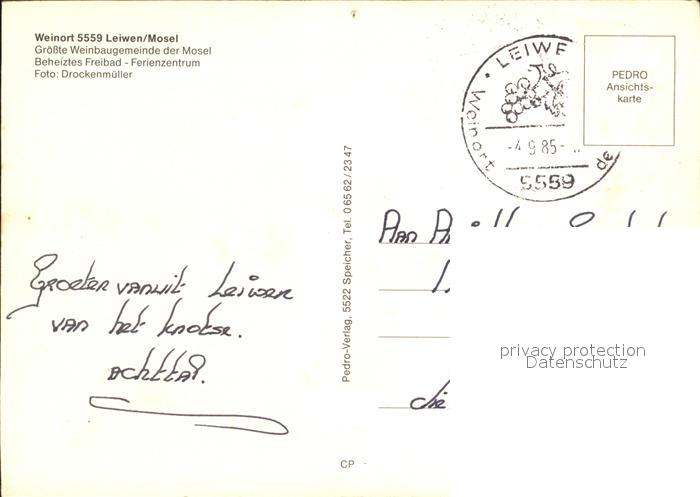 Weinort 5559 Leiwen/Mosel
Größte Weinbaugemeinde der Mosel
Beheiztes Freibad - Ferienzentrum
Foto: Drockenmüller
LEIWE
Weinort
de
-4.9.85-
5559
PEDRO
Ansichts-
karte
Pedro-Verlag, 5522 Speicher, Tel. 0 65 62 / 23 47
Aan
Groeten vanuit Leiwen
van het knotse.
achttal.
privacy protection
Datenschutz
CP